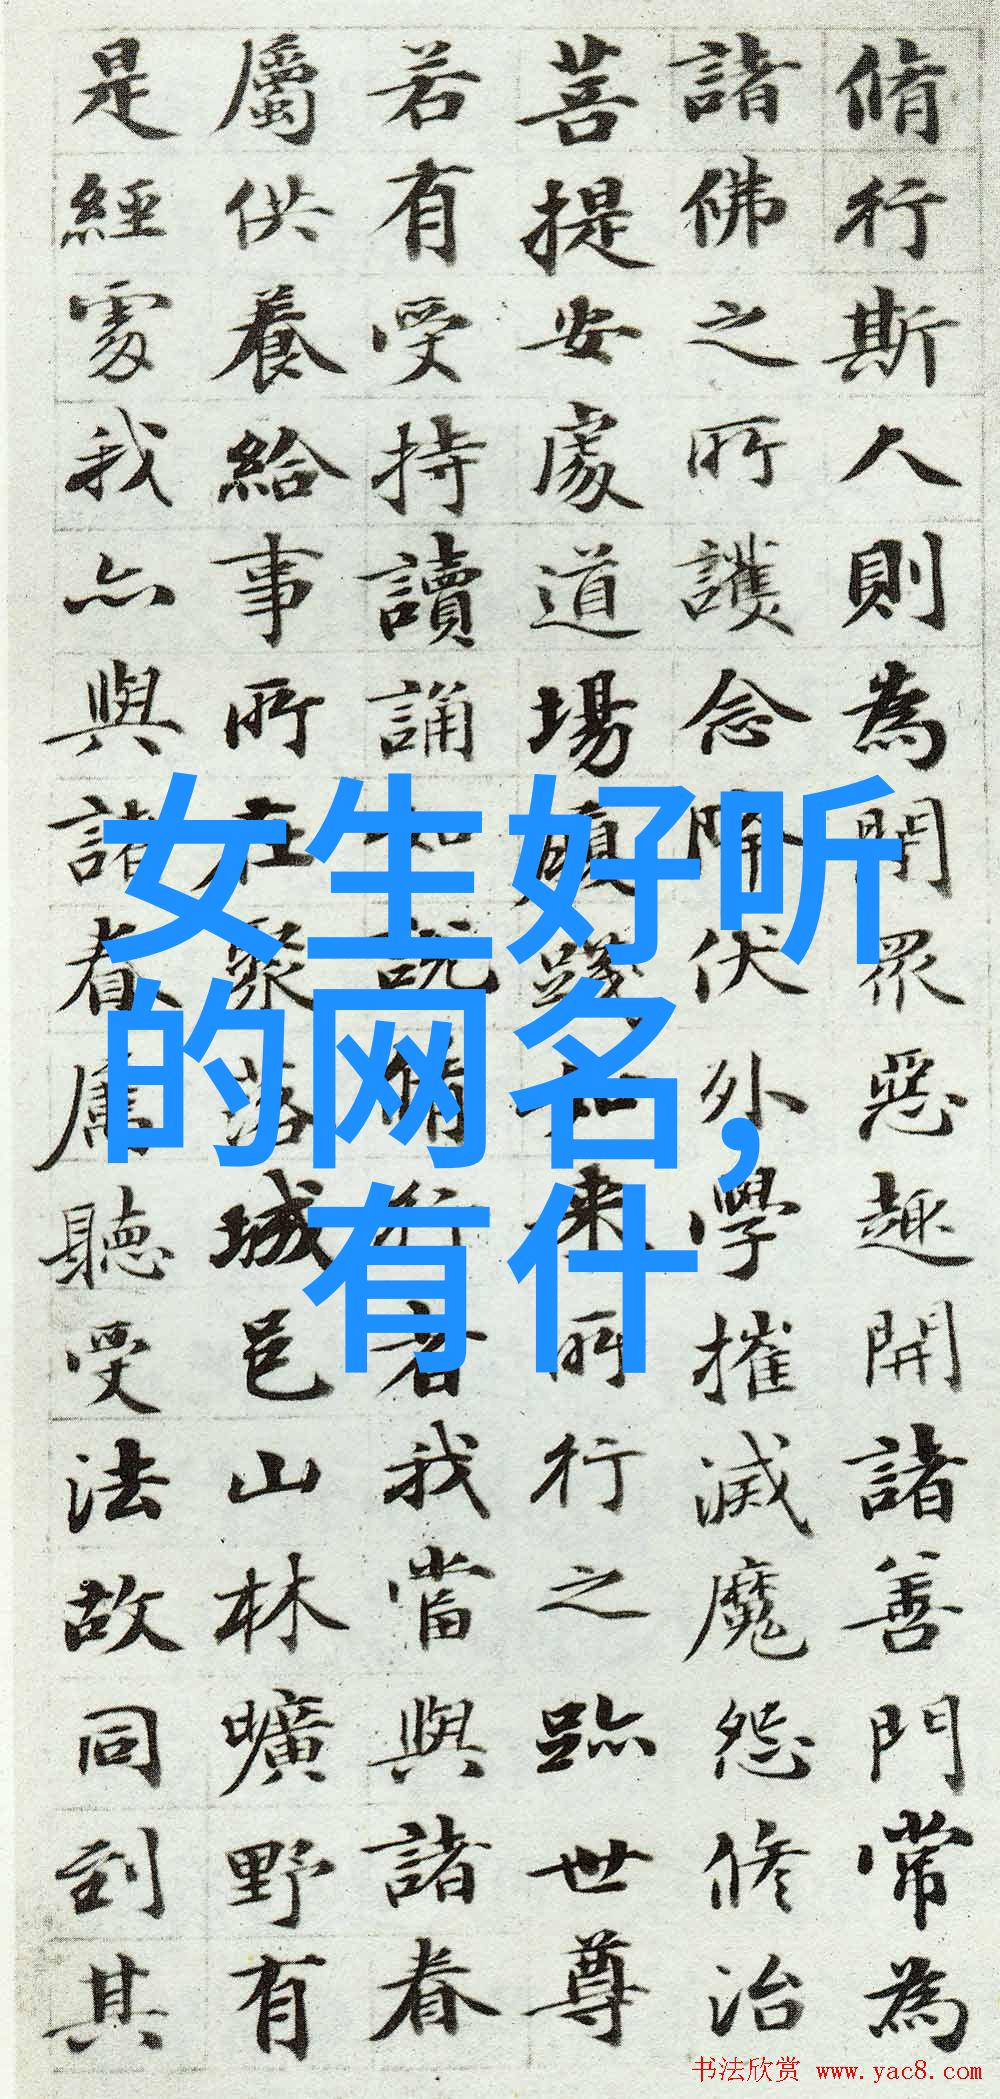 脩行斯人則為閇眾惡趣開諸善門常為
諸佛之所護念降伏外學摧滅魔怨修治
菩提安處道場履踐如来所行之跡世尊
若有受持讀誦如說脩行者我當與諸眷
屬供養給事所在聚落城邑山林曠野有
是經處我亦與諸眷屬聽受法故同到其
女生好听
的网名，
有什
书法欣赏 www.yac8.com